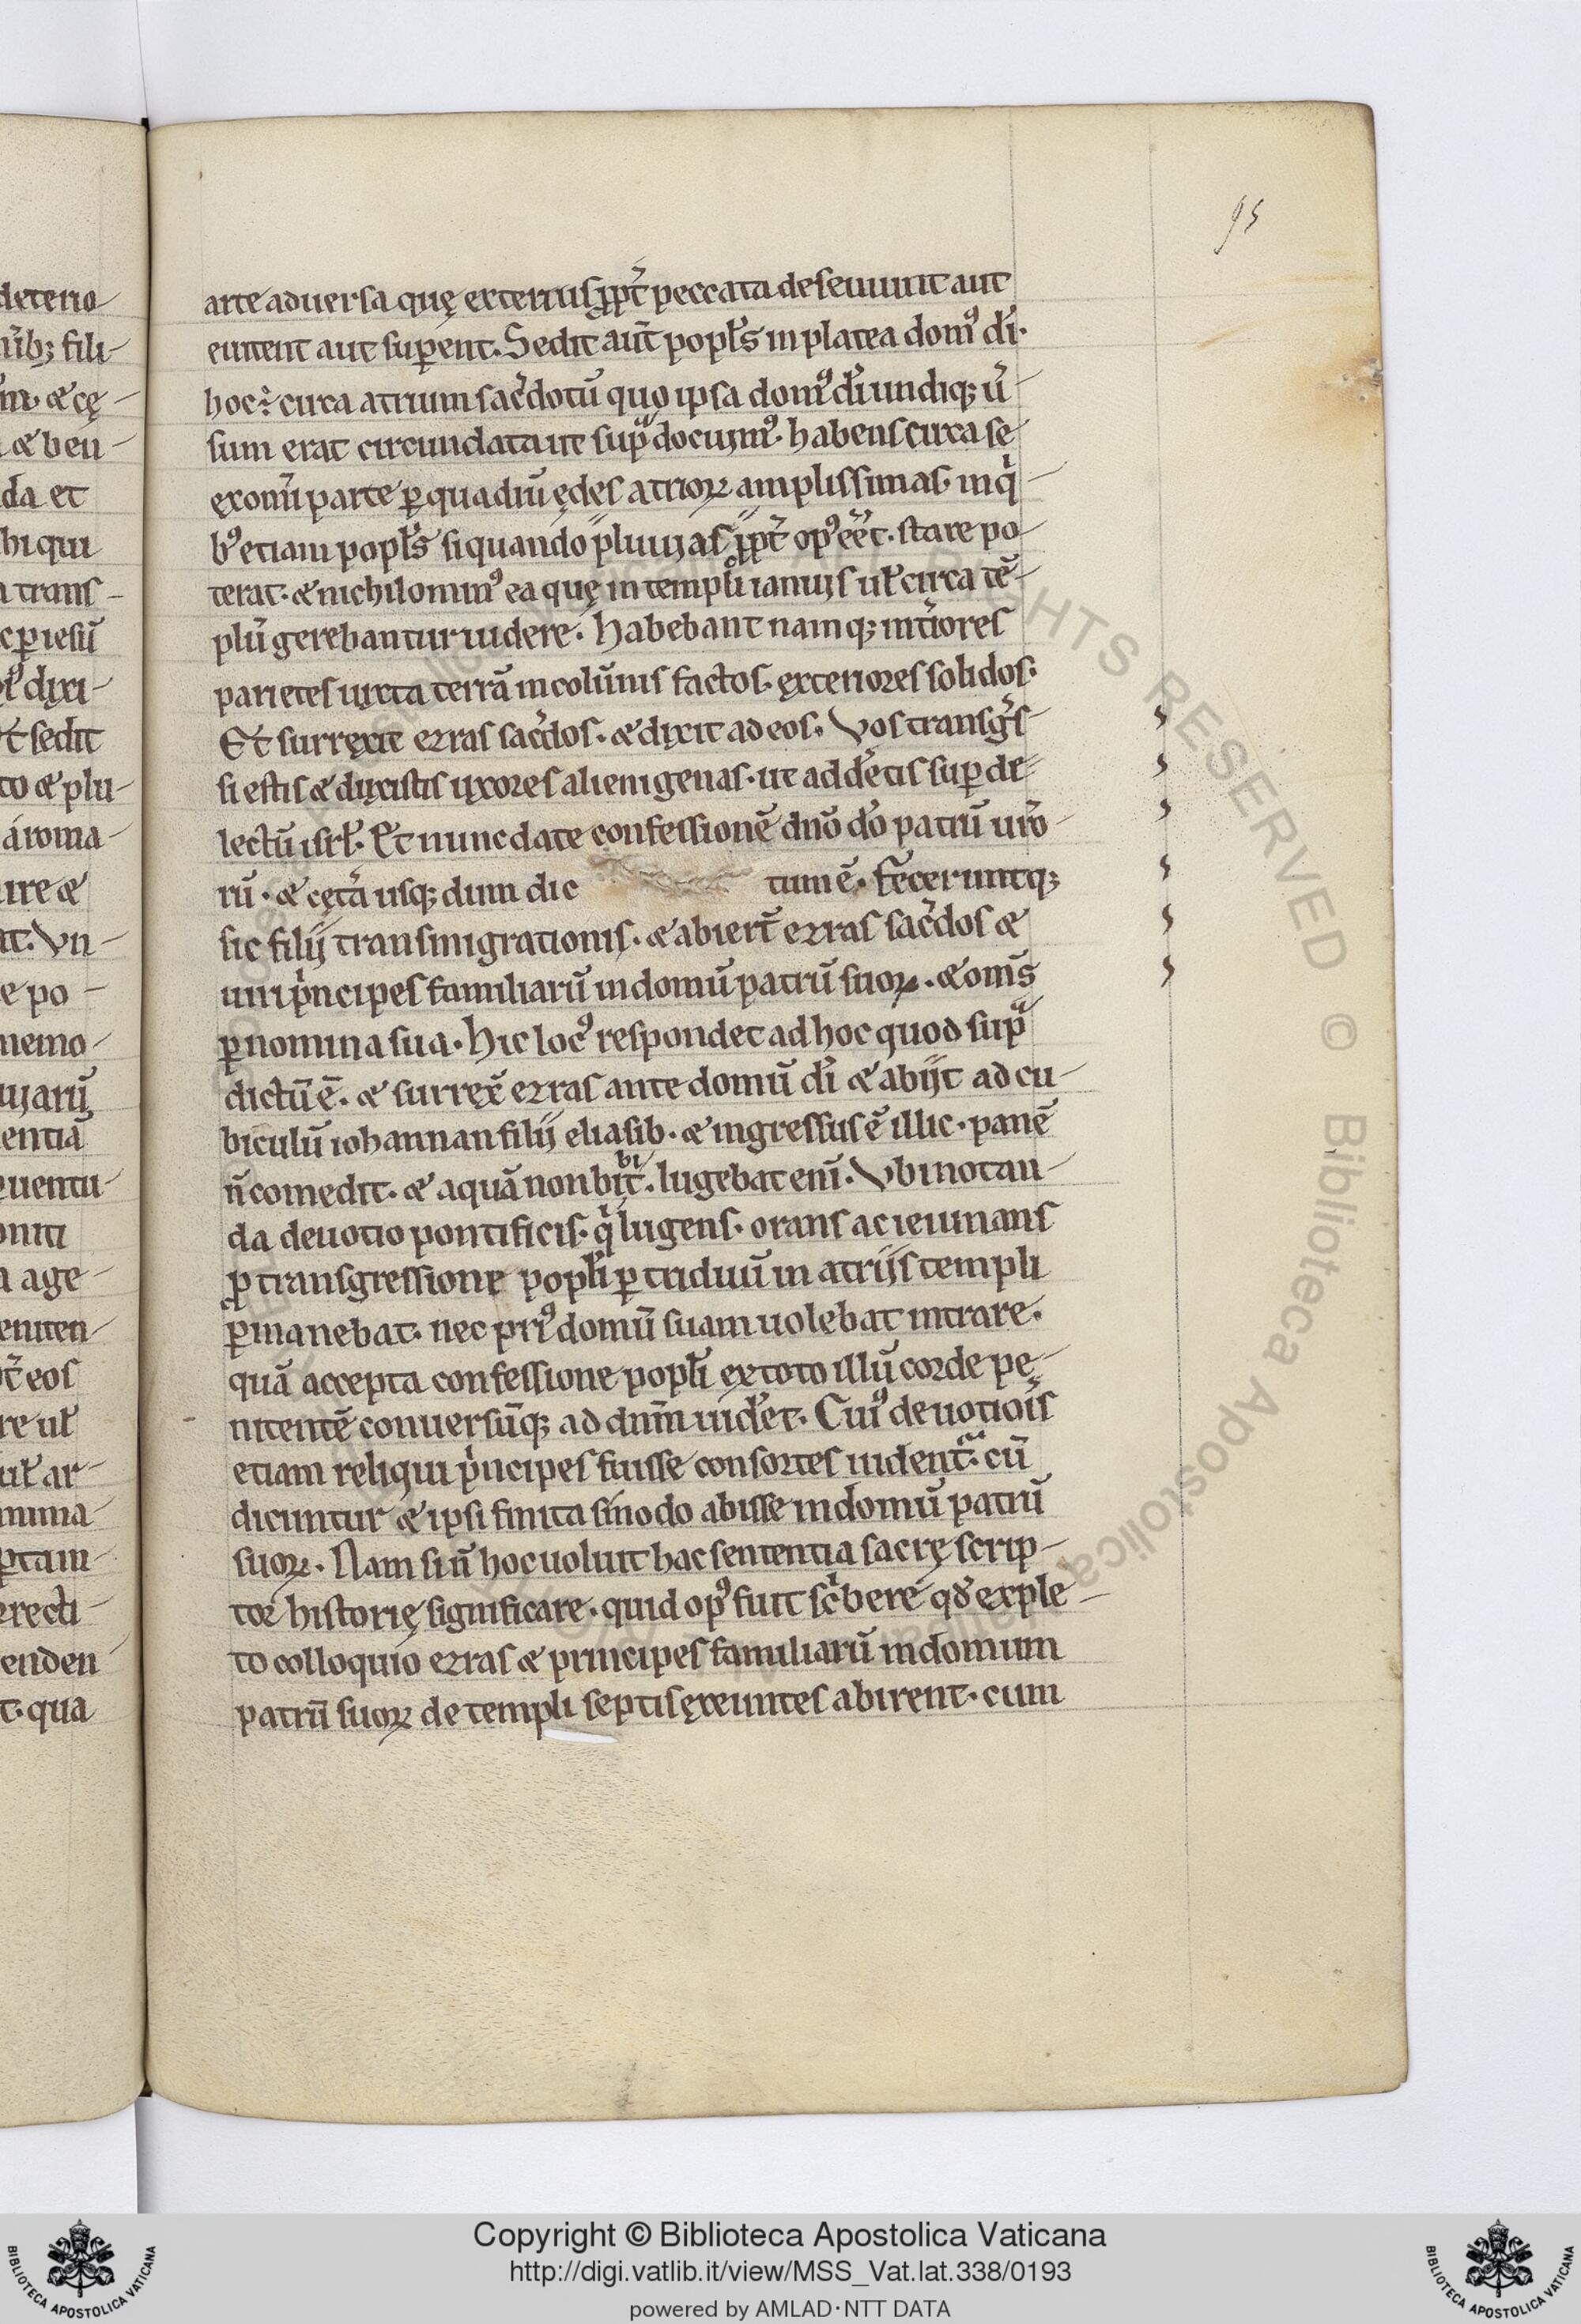 95
deterio
arte aduersa quę exterius ꝓpt̄ peccata deseuiunt aut
euitent aut suꝑent. Sedit aut̄ popl̄s in platea dom⁹ dī.
hoc ē circa atrium sac̄dotū quo ipsa dom⁹ dī undiq; ū
sum erat circundata ut sup̄ docuim⁹. habens circa se
ex om̄i parte ꝑ quadrū ędes atrioꝝ amplissimas. in q̄
b⁹ etiam popl̄s si quando pluuias ꝓpt̄ op⁹ eēt. stare po
terat. & nichilomin⁹ ea quę in templi ianuis ul̄ circa tē
plū gerebantur uidere. Habebant namq; int̄iores
parietes iuxta terrā in colūnis factos. exteriores solidos.
Et surrexit ezras sac̄dos. & dixit ad eos. Vos transḡs
si estis & duxistis uxores alienigenas. ut addētis suꝑ de
lectū isrl̄. Et nunc date confessionē dn̄o dō patrū ur̄o
rū. & cet̄a usq; dum dic tum ē. feceruntq;
sic filii transmigrationis. & abiert̄ ezras sac̄dos &
uiri p̄ncipes familiarū in domū patrū suoꝝ. & om̄s
ꝑ nomina sua. Hic loc⁹ respondet ad hoc quod sup̄
dictū ē. & surrex̄ ezras ante domū dī & abiit ad cu
biculū iohannan filii eliasib. & ingressus ē illic. panē
n̄ comedit. & aquā non bibit. lugebat enī. Vbi notan
da deuotio pontificis. q̄ lugens. orans ac ieiunans
ꝓ transgressione popl̄i ꝑ triduū in atriis templi
ꝑmanebat. nec pri⁹ domū suam uolebat intrare.
quā accepta confessione popl̄i ex toto illū corde pę
nitentē conuersūq; ad dn̄m uidēt. Cui⁹ deuotiōis
etiam reliqui p̄ncipes fuisse consortes uident̄. cū
dicuntur & ipsi finita sinodo abisse in domū patrū
suoꝝ. Nam si n̄ hoc uoluit hac sententia sacrę scrip
tor historię significare. quid op⁹ fuit sc̄bere qd̄ exple
to colloquio ezras & principes familiarū in domum
patrū suoꝝ de templi septis exeuntes abirent. cum
Copyright © Biblioteca Apostolica Vaticana
http://digi.vatlib.it/view/MSS_Vat.lat.338/0193
powered by AMLAD·NTT DATA